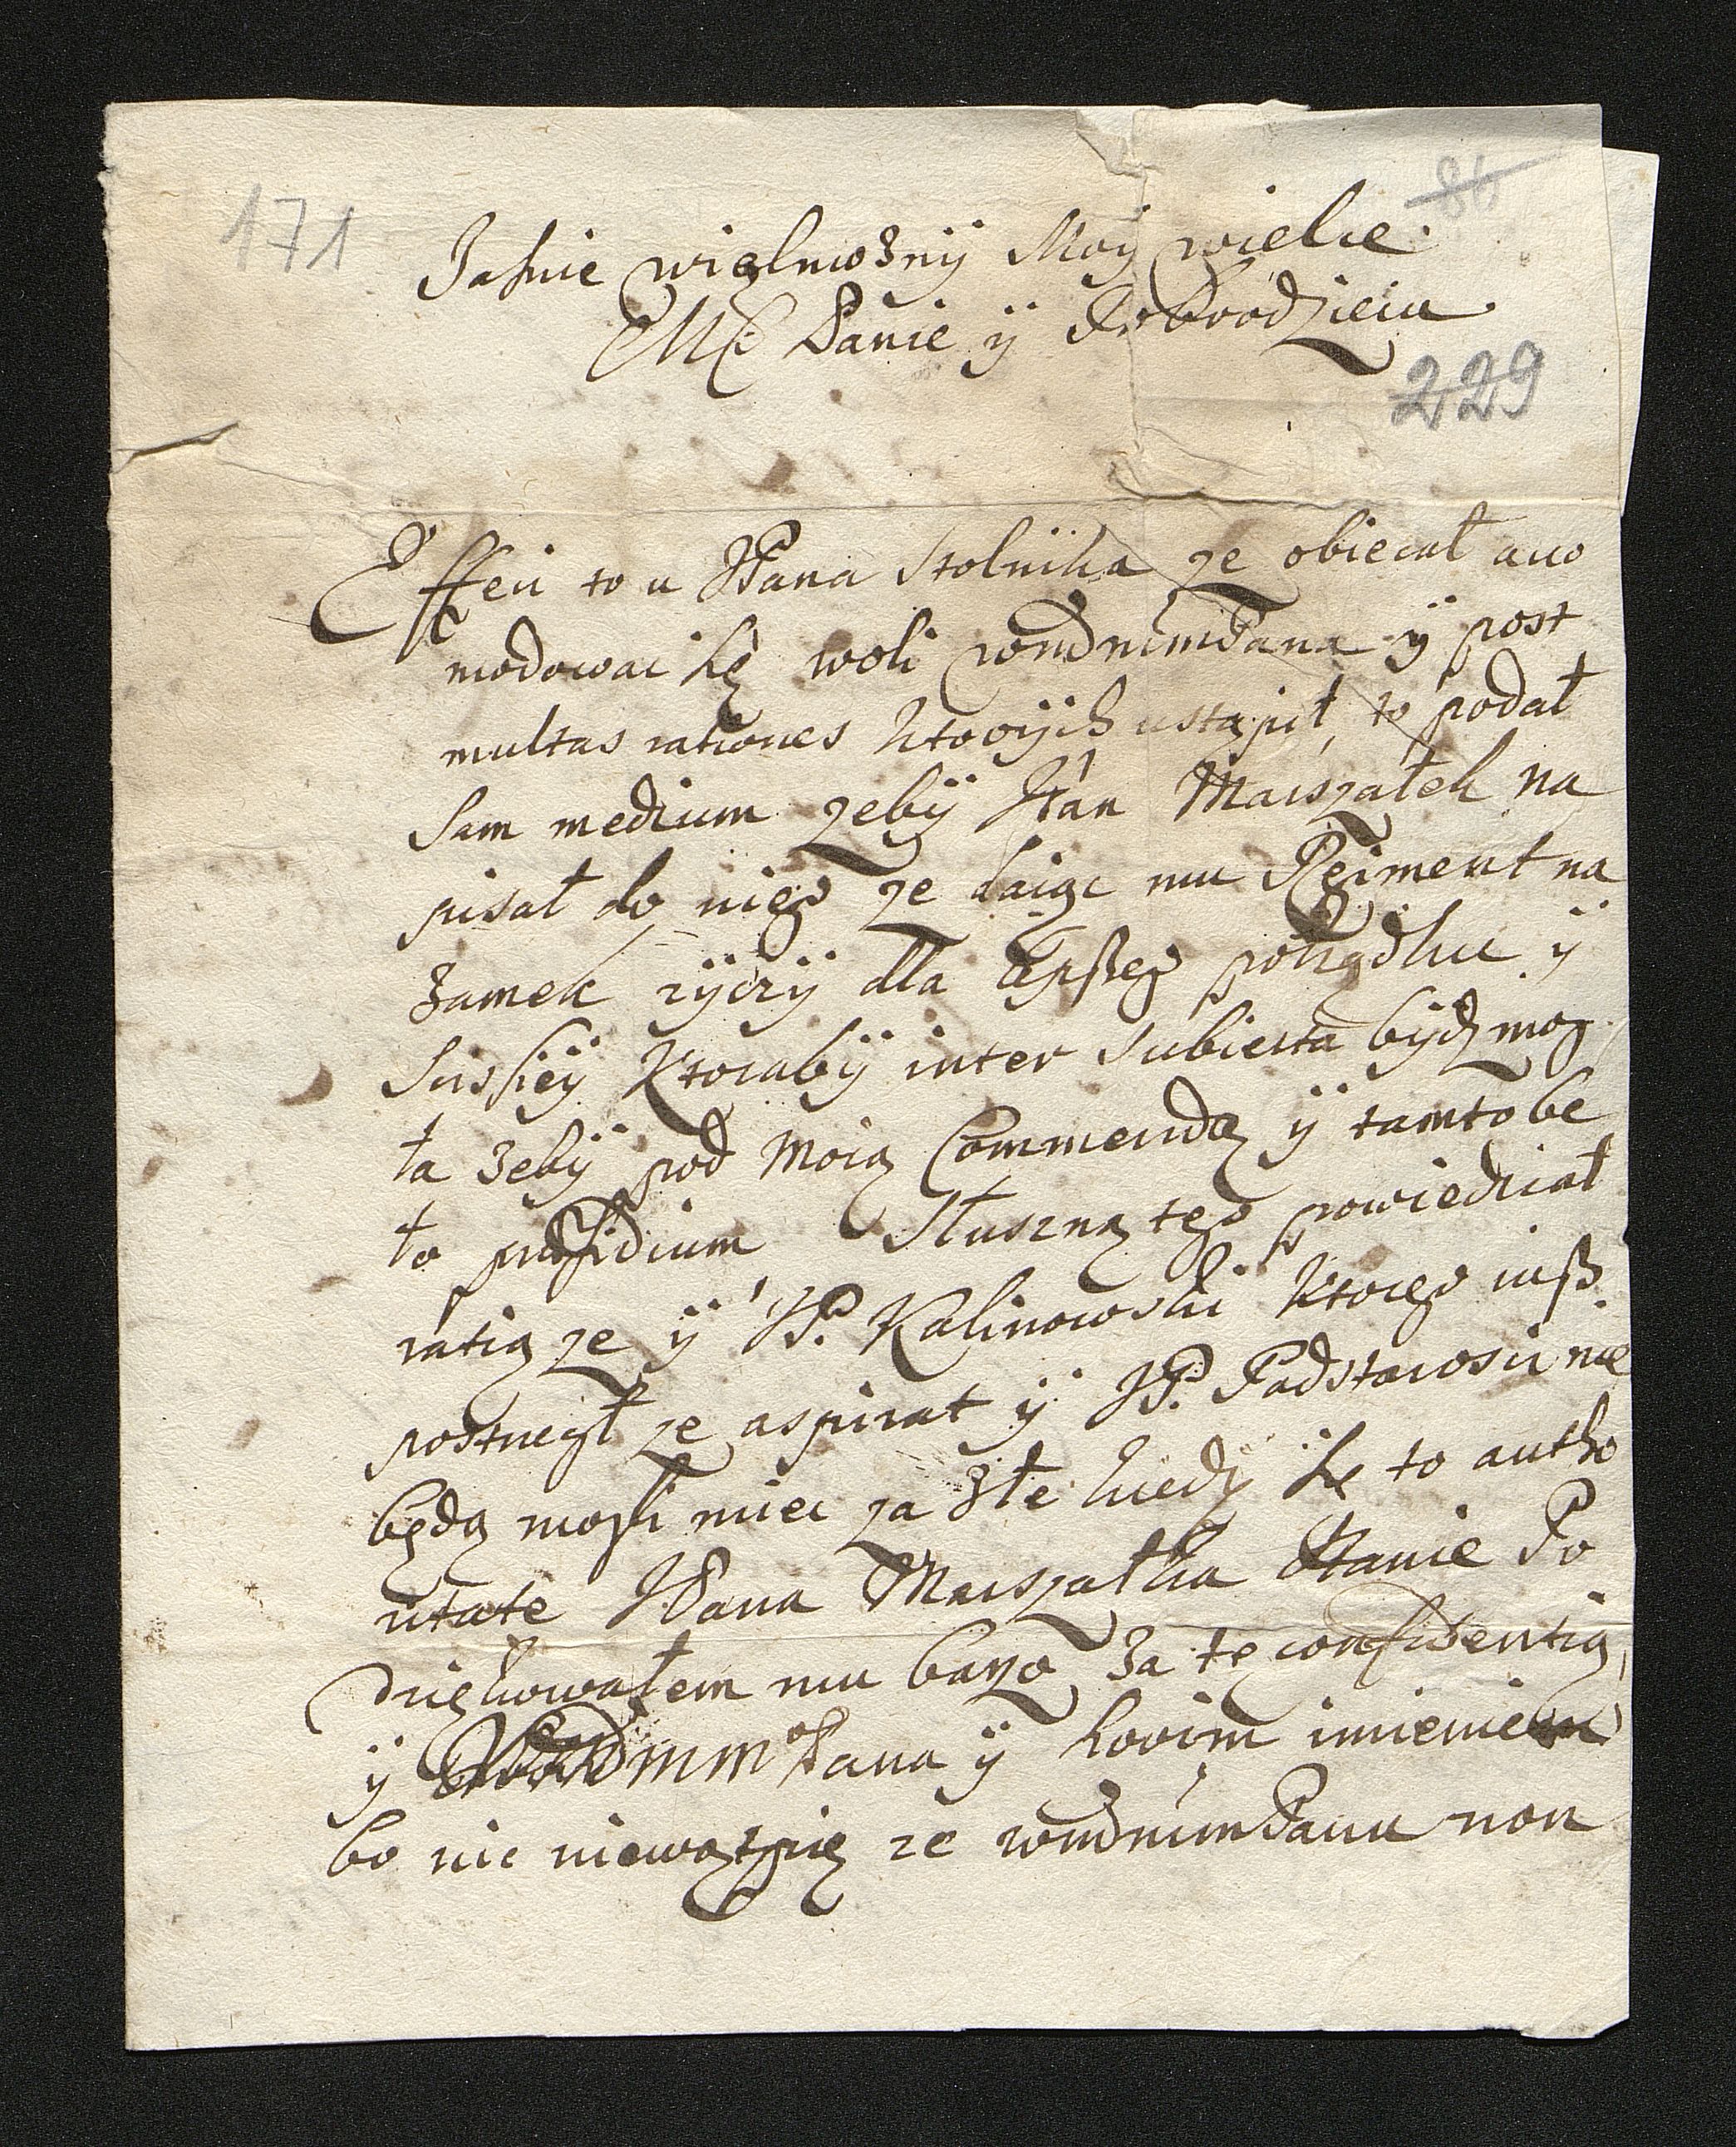 171
86
Jaśnie wielmożnÿ Moÿ wielce
Mć Panie ÿ Dobrodzieiu
229
Effeci to u JPana Stolnika że obiecał acco
modowac się woli wmdnimPana ÿ post
multas rationes ktorÿch ustąpił, to podał
sam medium żebÿ JPan Marszałek na
pisał do niego że daiąc mu Regiment na
Zamek życzÿ dla lepszego porządku ÿ
ktorabÿ inter subiecta bÿdz mog
ła żebÿ pod moią Commendą ÿ tamto be
ło præsidium Słuszną tego powiedział
ratią że ÿ JP. Kalinowski ktorego iusz
postrzegł że aspirat ÿ JP. Podstarosci nie
będą mogli miec za złe kiedy się to autho
ritate JPana Marszałka stanie Po
dziękowałem mu barzo za tę confidentią
ÿ mm Pana ÿ swoim imieniem
bo nic niewątpię ze wmdnimPanu non